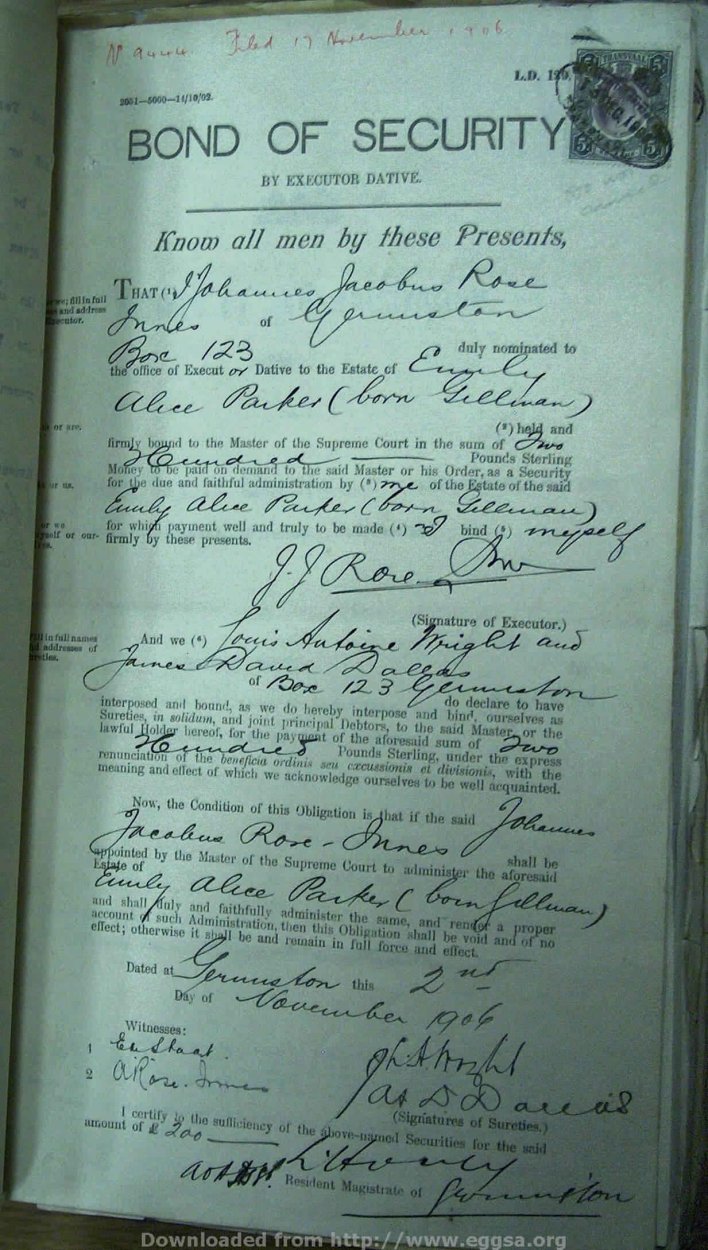 Filed 17 November 1906
L.D. 129.
2051—5000—14/10/02.
TRANSVAAL
BOND OF SECURITY
BY EXECUTOR DATIVE.
Know all men by these Presents,
THAT (1) I Johannes Jacobus Rose
Innes of Germiston
Box 123 duly nominated to
the office of Execut or Dative to the Estate of Emily
Alice Parker (born Gillman)
(2) held and
firmly bound to the Master of the Supreme Court in the sum of Two
Hundred Pounds Sterling
Money to be paid on demand to the said Master or his Order, as a Security
for the due and faithful administration by (3) me of the Estate of the said
Emily Alice Parker (born Gillman)
for which payment well and truly to be made (4) I bind (5) myself
firmly by these presents.
J. J. Rose Innes
(Signature of Executor.)
And we (6) Louis Antoine Wright and
James David Dallas
of Box 123 Germiston
do declare to have
interposed and bound, as we do hereby interpose and bind, ourselves as
Sureties, in solidum, and joint principal Debtors, to the said Master, or the
lawful Holder hereof, for the payment of the aforesaid sum of Two
Hundred Pounds Sterling, under the express
renunciation of the beneficia ordinis seu excussionis et divisionis, with the
meaning and effect of which we acknowledge ourselves to be well acquainted.
Now, the Condition of this Obligation is that if the said Johannes
Jacobus Rose-Innes shall be
appointed by the Master of the Supreme Court to administer the aforesaid
Estate of
Emily Alice Parker (born Gillman)
and shall duly and faithfully administer the same, and render a proper
account of such Administration, then this Obligation shall be void and of no
effect; otherwise it shall be and remain in full force and effect.
Dated at Germiston this 2nd
Day of November 1906
Witnesses:
1
2 A Rose-Innes
L. A Wright
Jas D Dallas
(Signatures of Sureties.)
I certify to the sufficiency of the above-named Securities for the said
amount of £ 200
Resident Magistrate of Germiston
Downloaded from http://www.eggsa.org